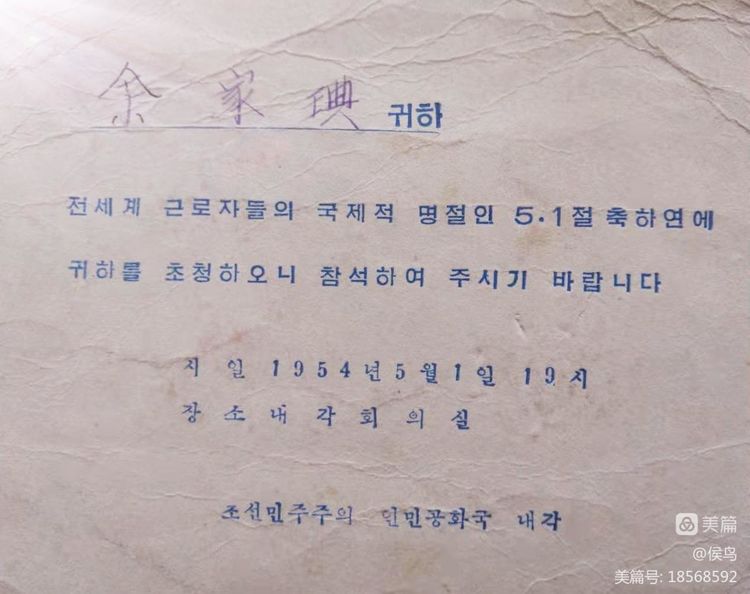 余家琠 귀하
전세계 근로자들의 국제적 명절인 5.1절 축하연에
귀하를 초청하오니 참석하여 주시기 바랍니다
시일 1954년5월1일 19시
장소내각회의실
조선민주주의 인민공화국 내각
美篇
@侯鸟
美篇号: 18568592